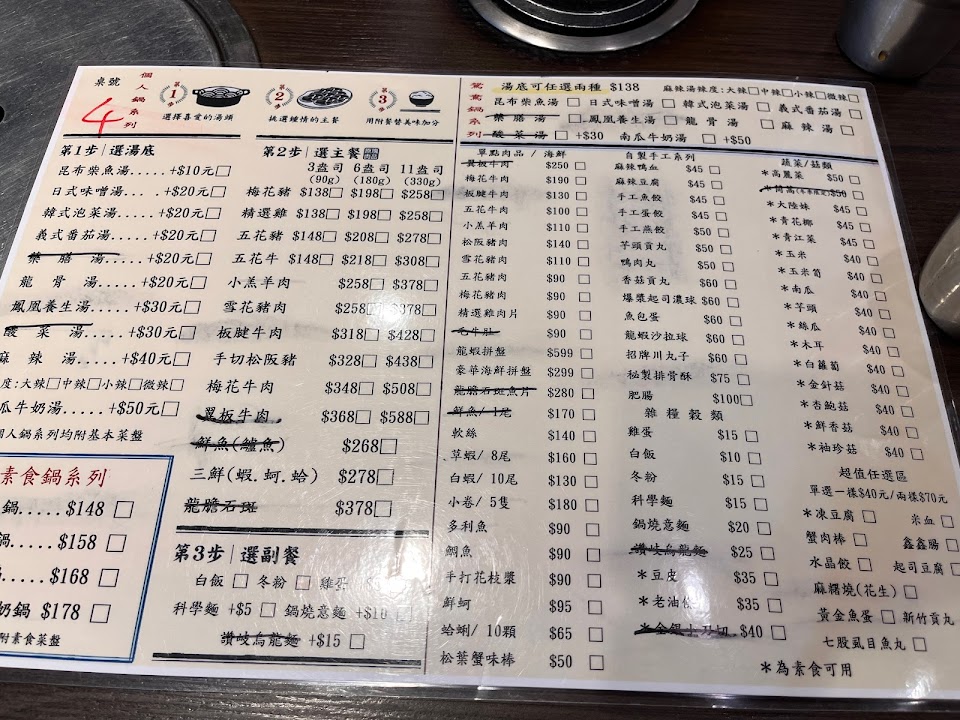 桌號
4
個人鍋系列
第1步
選擇喜愛的湯頭
第2步
挑選鍾情的主餐
第3步
用附餐替美味加分
第1步｜選湯底
昆布柴魚湯.....+$10元□
日式味噌湯....+$20元□
韓式泡菜湯.....+$20元□
義式番茄湯.....+$20元□
藥膳湯.....+$20元□
龍骨湯.....+$20元□
鳳凰養生湯.....+$30元□
酸菜湯.....+$30元□
麻辣湯.....+$40元□
度:大辣□中辣□小辣□微辣□
瓜牛奶湯....+$50元□
個人鍋系列均附基本菜盤
素食鍋系列
鍋.....$148 □
鍋.....$158 □
.....$168 □
奶鍋 $178 □
附素食菜盤
第2步｜選主餐
3盎司 6盎司 11盎司
(90g) (180g) (330g)
梅花豬 $138□ $198□ $258□
精選雞 $138□ $198□ $258□
五花豬 $148□ $208□ $278□
五花牛 $148□ $218□ $308□
小羔羊肉 $258□ $378□
雪花豬肉 $258□ $378□
板腱牛肉 $318□ $428□
手切松阪豬 $328□ $438□
梅花牛肉 $348□ $508□
翼板牛肉 $368□ $588□
鮮魚(鱸魚) $268□
三鮮(蝦.蚵.蛤) $278□
龍膽石斑 $378□
第3步｜選副餐
白飯 □ 冬粉 □ 雞蛋
科學麵 +$5 □ 鍋燒意麵 +$10 □
讚岐烏龍麵 +$15 □
鴛鴦鍋系列
湯底可任選兩種 $138 麻辣湯辣度:大辣□中辣□小辣□微辣□
昆布柴魚湯 □ 日式味噌湯 □ 韓式泡菜湯 □ 義式番茄湯 □
藥膳湯 □ 鳳凰養生湯 □ 龍骨湯 □ 麻辣湯 □
酸菜湯 □+$30 南瓜牛奶湯 □+$50
單點肉品 / 海鮮
翼板牛肉 $250 □
梅花牛肉 $190 □
板腱牛肉 $130 □
五花牛肉 $100 □
小羔羊肉 $110 □
松阪豬肉 $140 □
雪花豬肉 $110 □
五花豬肉 $90 □
梅花豬肉 $90 □
精選雞肉片 $90 □
毛牛肚 $90 □
龍蝦拼盤 $599 □
豪華海鮮拼盤 $299 □
龍膽石斑魚片 $280 □
鮮魚/ 1尾 $170 □
軟絲 $140 □
草蝦/ 8尾 $160 □
白蝦/ 10尾 $130 □
小卷/ 5隻 $180 □
多利魚 $90 □
鯛魚 $90 □
手打花枝漿 $90 □
鮮蚵 $95 □
蛤蜊/ 10顆 $65 □
松葉蟹味棒 $50 □
自製手工系列
麻辣鴨血 $45 □
麻辣豆腐 $45 □
手工魚餃 $45 □
手工蛋餃 $45 □
手工燕餃 $50 □
芋頭貢丸 $50 □
鴨肉丸 $50 □
香菇貢丸 $60 □
爆漿起司濃球 $60 □
魚包蛋 $60 □
龍蝦沙拉球 $60 □
招牌川丸子 $60 □
秘製排骨酥 $75 □
肥腸 $100□
雜糧穀類
雞蛋 $15 □
白飯 $10 □
冬粉 $15 □
科學麵 $15 □
鍋燒意麵 $20 □
讚岐烏龍麵 $25 □
*豆皮 $35 □
*老油條 $35 □
$40 □
蔬菜/菇類
*高麗菜 $50 □
*茼蒿 $50 □
*大陸妹 $45 □
*青花椰 $45 □
*青江菜 $45 □
*玉米 $40 □
*玉米筍 $40 □
*南瓜 $40 □
*芋頭 $40 □
*絲瓜 $40 □
*木耳 $40 □
*白蘿蔔 $40 □
*金針菇 $40 □
*杏鮑菇 $40 □
*鮮香菇 $40 □
*袖珍菇 $40 □
超值任選區
單選一樣$40元/兩樣$70元
*凍豆腐 □ 米血 □
蟹肉棒 □ 鑫鑫腸 □
水晶餃 □ 起司豆腐 □
麻糬燒(花生) □
黃金魚蛋 □ 新竹貢丸
七股虱目魚丸 □
*為素食可用